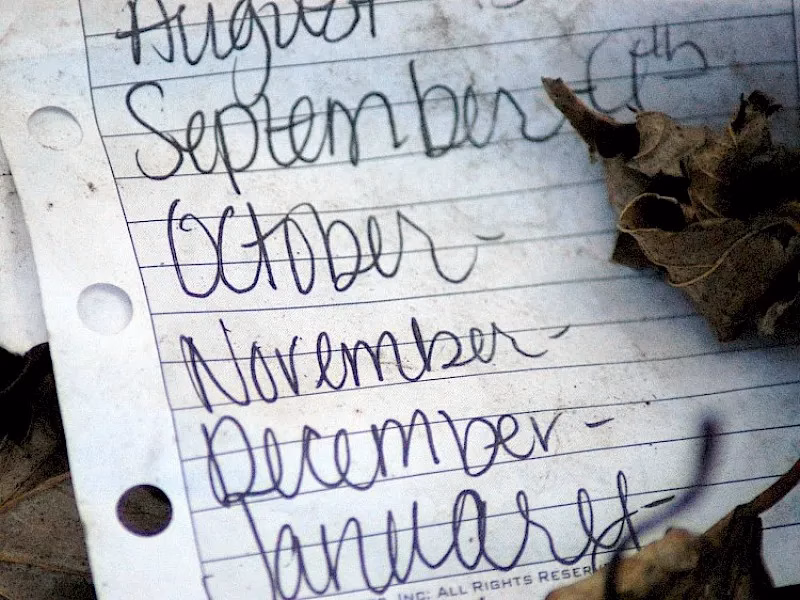 August
September - 6th
October -
November -
December -
January -
INC; ALL RIGHTS RESER